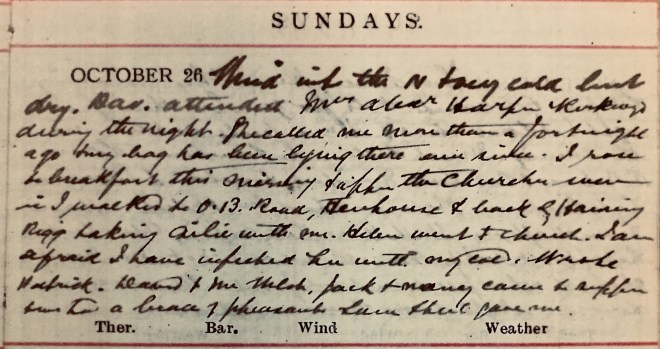 SUNDAYS.
OCTOBER 26 Wind into the N & very cold but
dry. Bar. attended Mrs Alexr Harper
during the night. She called me more than a fortnight
ago & my bag has been lying there ever since. I rose
to breakfast this morning & after the Churches were
in I walked to O.B. Road, Henhouse & back by Haining
Rigg taking with me. Helen went to church. I am
afraid I have infected her with my cold. Wrote
Patrick. David & Mr Welsh, Jack & Nancy came to supper
a brace of pheasants gave me.
Ther. Bar. Wind Weather